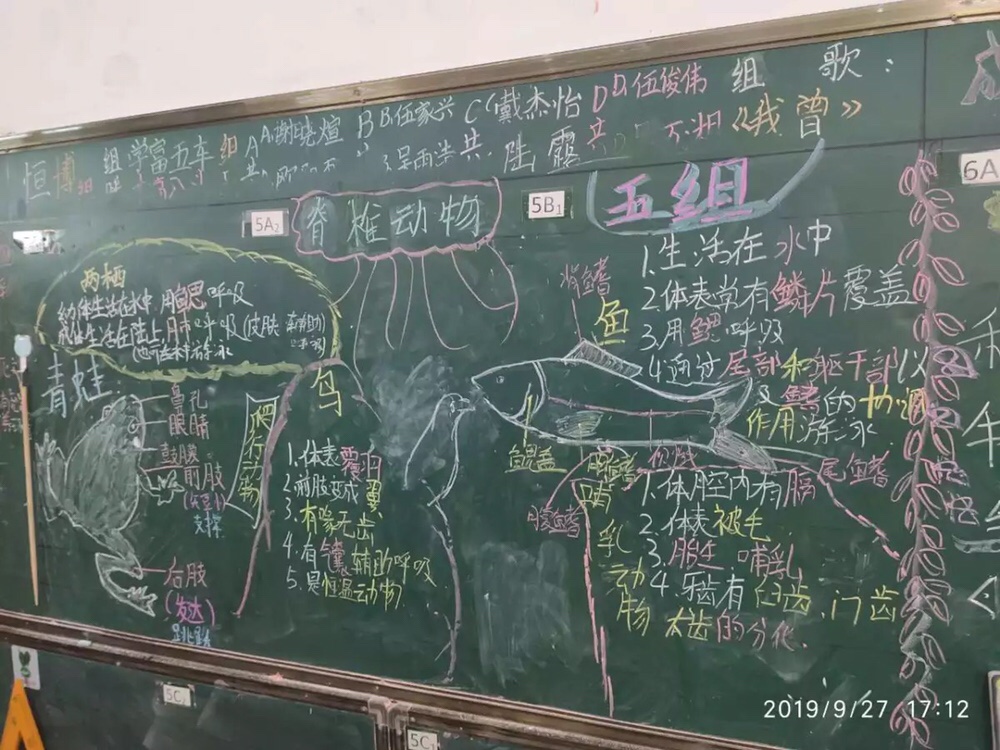 恒博组 学富五车组 A A谢晓煊 B B伍家兴 C 戴杰怡 D D伍俊伟 组歌：
《我曾》
5A2
脊椎动物
5B1
五组
6A
两栖
幼体生活在水中 用鳃呼吸
成体生活在陆上 用肺呼吸(皮肤辅助
呼吸)
青蛙
鼻孔
眼睛
鼓膜
前肢
支撑
后肢
(发达)
跳跃
爬行动物
鸟
1.体表覆羽
2.前肢变成翼
3.有喙无齿
4.有气囊辅助呼吸
5.是恒温动物
鱼
1.生活在水中
2.体表常有鳞片覆盖
3.用鳃呼吸
4.通过尾部和躯干部以
及鳍的协调
作用游泳
鳃盖
尾鳍
腹鳍
哺乳动物
1.体腔内有膈
2.体表被毛
3.胎生 哺乳
4.牙齿有臼齿、门齿
犬齿的分化
5C1
5C
2019/9/27 17:12